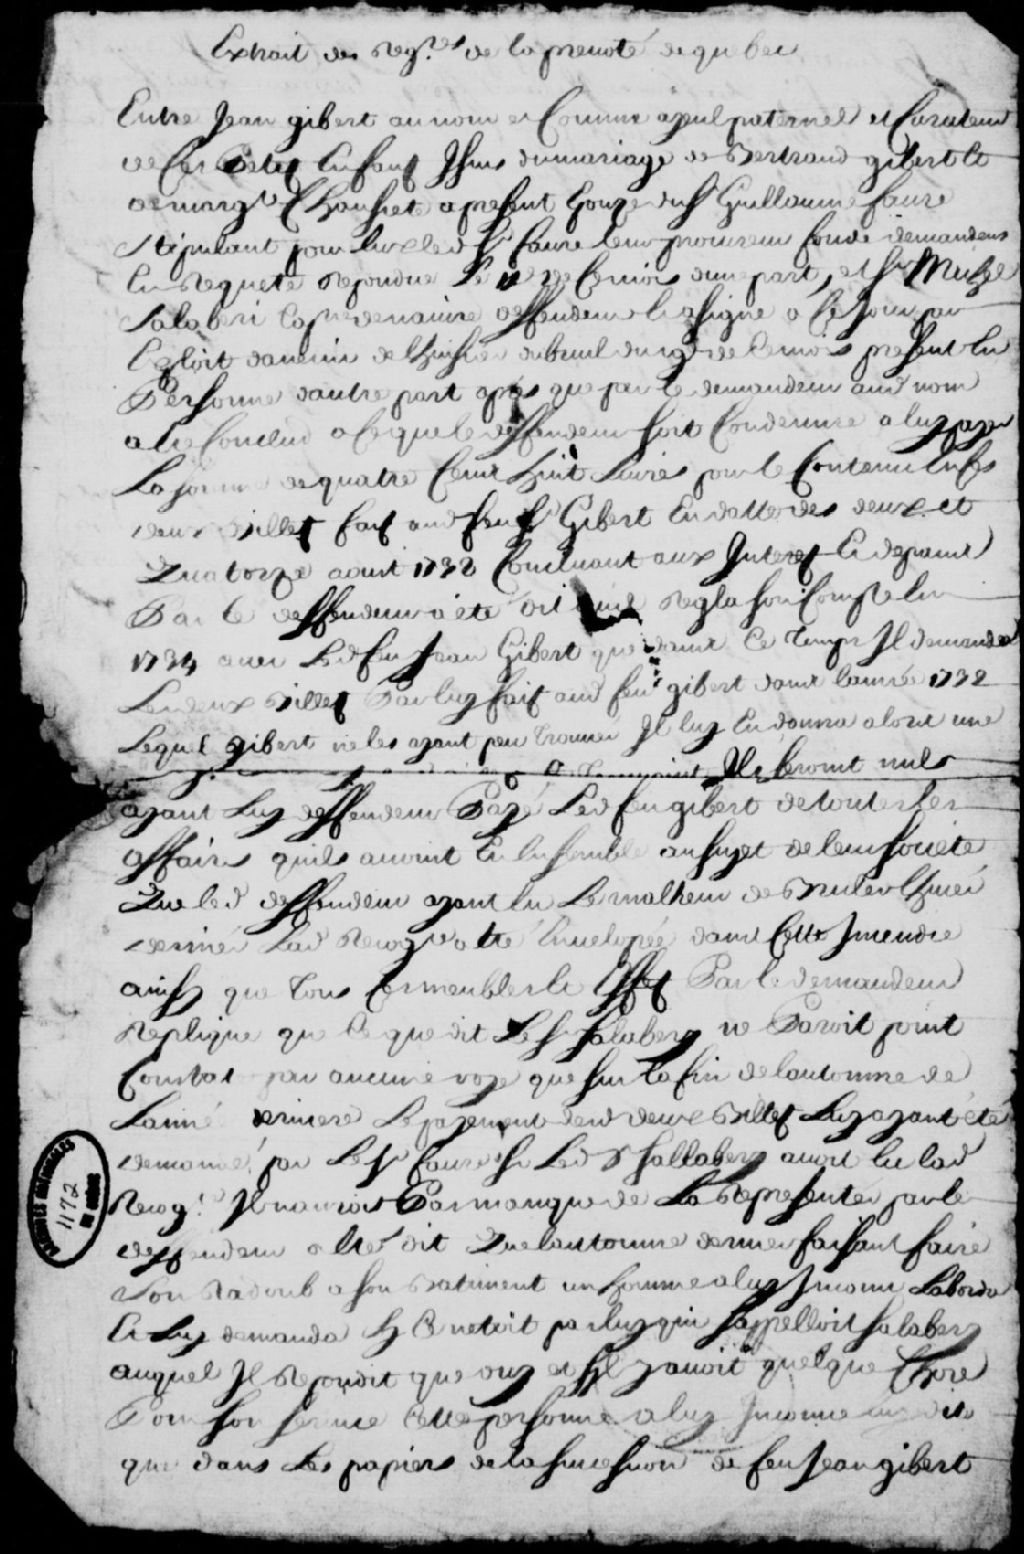 Extrait des Reg.res de la prevoté de quebec
Entre Jean gibert au nom et Comme ayeul paternel et Curateur
de Ces Petits Enfans Jssus du mariage de Bertrand gibert et
de marg.te Chonfret apresent Epouze du Sr Guillaume faure
stipulant pour luy led Sr faure leur procureur fondé demandeur
En Requete Repondue Le de Ce mois dune part, et Sr
Salaberi Cap.ne de navire deffendeur et assigné a Ce Jour par
Exploit de lhuissier dubreuil du de Ce mois present En
Personne dautre part apres que par le demandeur aud nom
a Ete Conclud a Ceque le deffendeur soit Condemné a luy payer
La somme de quatre Cent huit Livres pour le Contenu En Ses
deux Billets fait aud feu Sr Gibert En datte des deux et
Quatorze aoust 1732 Concluant aux Jnterest Et depans
Par le deffendeur a été dit quil Regla son Compte En
1734 avec Led feu Jean Gibert que dans Ce temps Jl demanda
Les deux Billets Par luy fait aud feu gibert dans lannée 1732
Lequel gibert ne les ayant peu trouver Jl luy En donna alors une
Jls seroint nuls
ayant Luy deffendeur Payé Led feu gibert de toutes les
affaires quils avoint Eu Ensemble au sujet de leur societé
Que led deffendeur ayant Eu Le malheur de Bruler Lhiver
dernier Lad Recog.ce a Eté Envelopée dans Cette Jncendie
ainsy que tous Ces meubles Et Effets Par le demandeur
Replique que Ce que dit Le Sr Salabery ne Paroit point
Constaté par aucune voye que sur la fin de lautomne de
Lannée derniere Le payement desd deux Billets Luy ayant été
demandé par Le Sr faure si Led S Sallabery avoit Eu lad
Recog.ce Jl nauroit Pas manqué de La Representer par le
deffendeur a Eté dit Que lautomne dernier faisant faire
son Radoub a son Batiment un homme a luy Jnconnu Laborda
Et Luy demanda Sy Ce netoit pas luy qui sappelloit Salabery
auquel Jl Repondit que ouy et sil y avoit quelque Chose
Pour son service Cette personne a luy Jnconnue luy dit
que dans Les papiers de la succession de feu Jean gibert
ARCHIVES NATIONALES
1172